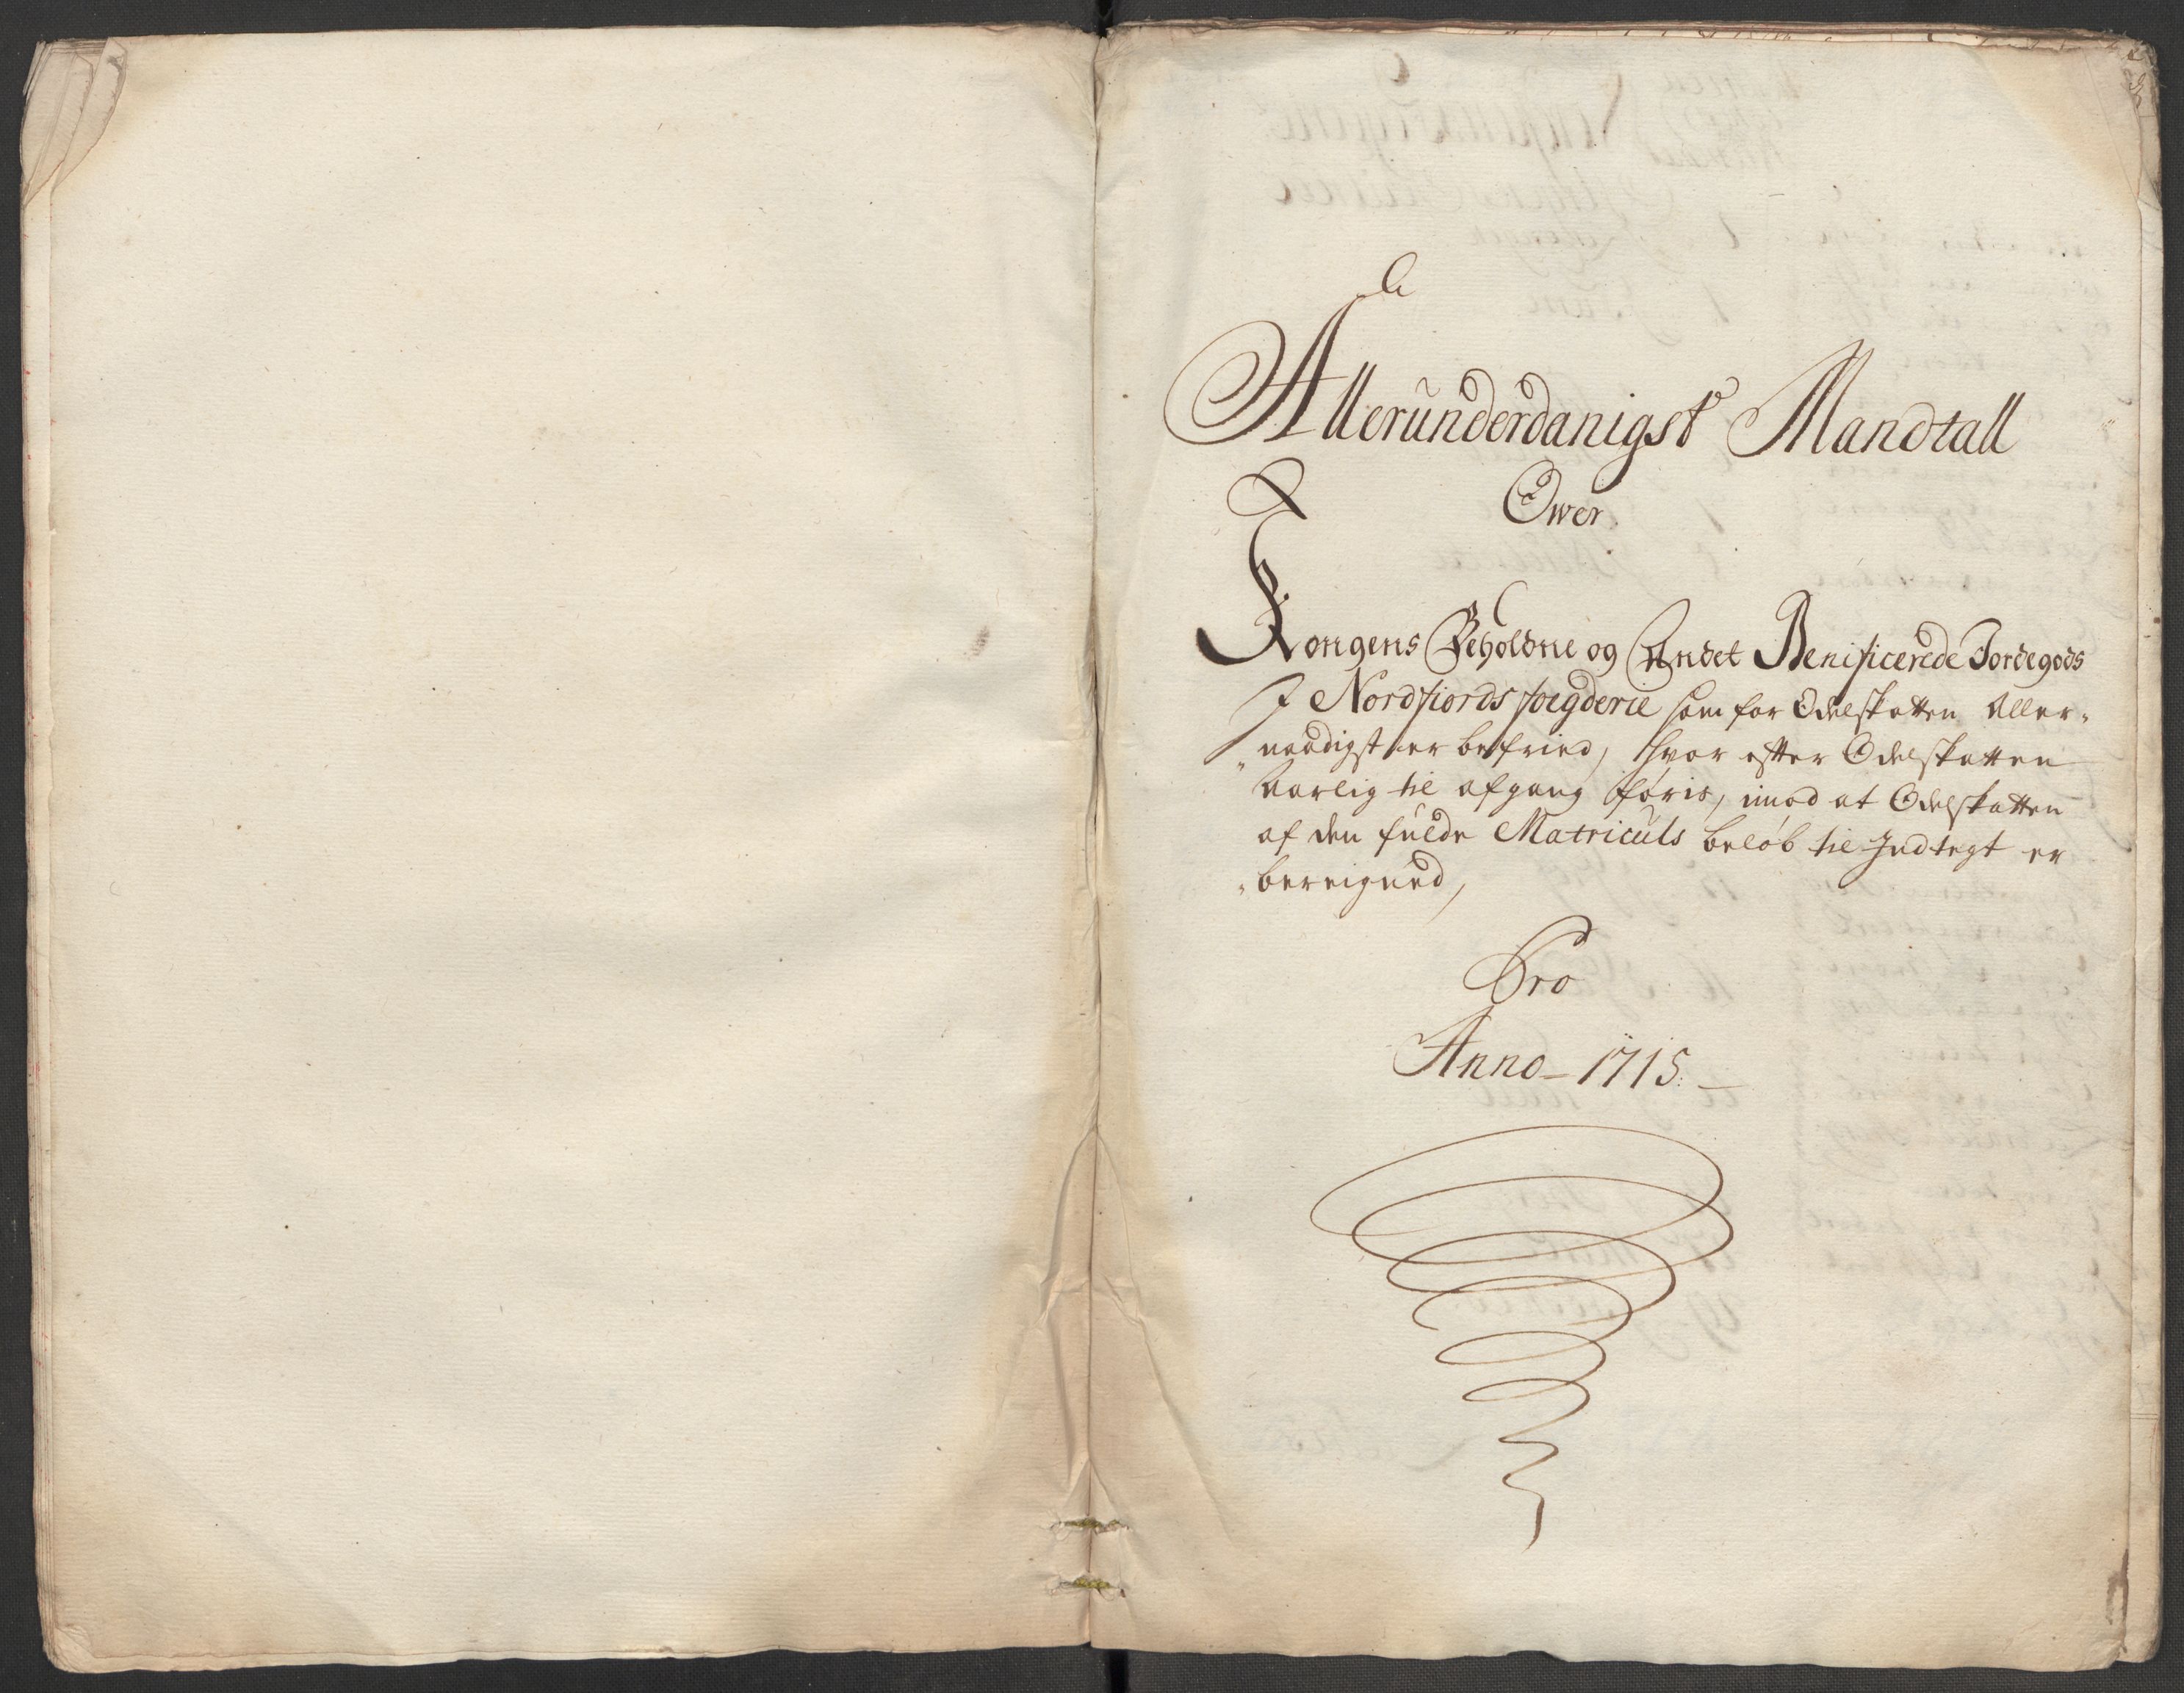 Allerunderdanigst Mandtall
Ower
Kongens Beholdne og Andet Benificerede Jordegods
J Nordfiords foegderie som for Odelskatten Aller-
naadigst er befried, Hvor effter Odelskatten
Aarlig til afgang føris, imod at Odelskatten
af den fulde Matriculs beløb til Indtegt er
bereigned,
Pro
Anno - 1715. -